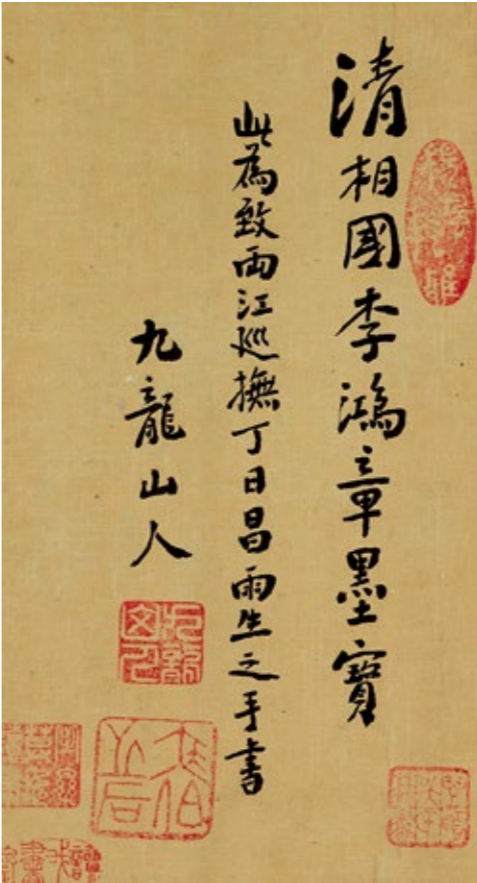 清相國李鴻章墨寶
此為致兩江巡撫丁日昌雨生之手書
九龍山人